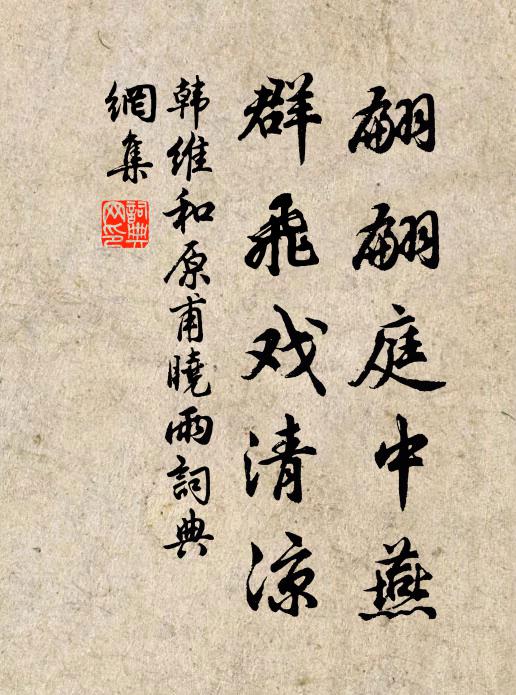 翩翩庭中燕
群飛戏清涼
韩維和原甫曉雨詞典
網集
詞典
网印